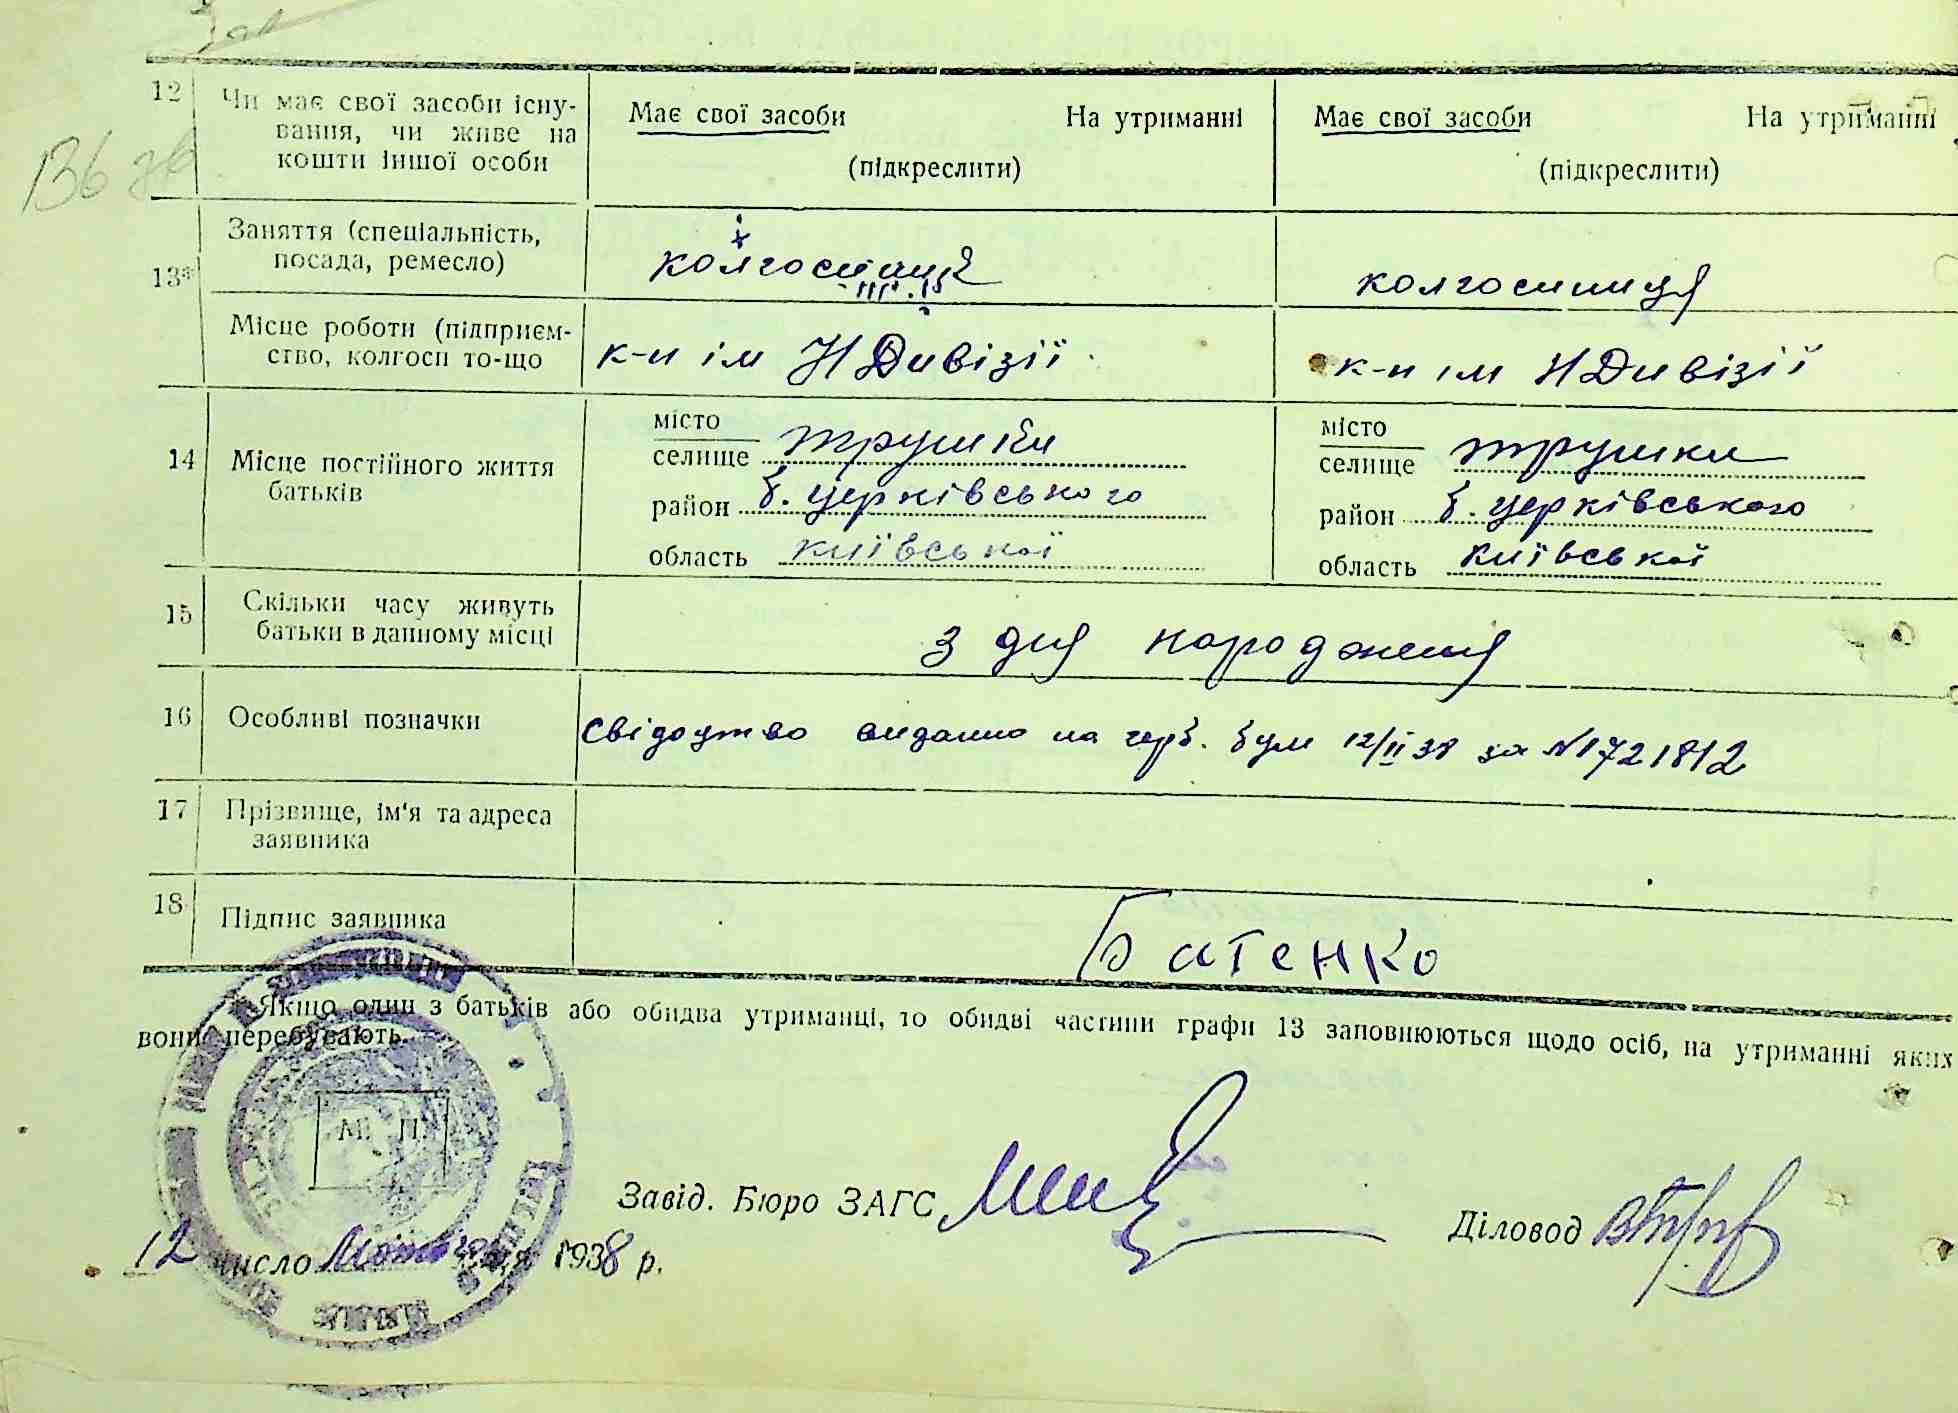 136 зв
12 Чи має свої засоби існу-
вання, чи живе на
кошти іншої особи
Має свої засоби На утриманні
(підкреслити)
Має свої засоби На утриманні
(підкреслити)
13*
Заняття (спеціальність,
посада, ремесло)
колгоспниця
Місце роботи (підприєм-
ство, колгосп то-що
к-п ім Н Дивізії
к-п ім Н Дивізії
14 Місце постійного життя
батьків
місто
селище Трушки
район б. церківського
область київської
місто
селище Трушки
район б. церківського
область київської
15 Скільки часу живуть
батьки в данному місці
з дня народження
16 Особливі позначки
Свідоцтво видано на герб. бум 12/II 38 за N 1721812
17 Прізвище, ім'я та адреса
заявника
18 Підпис заявника
Батенко
* Якщо один з батьків або обидва утриманці, то обидві частини графи 13 заповнюються щодо осіб, на утриманні яких
вони перебувають.
М. П.
Завід. Бюро ЗАГС
Діловод
12 число Лютого 1938 р.